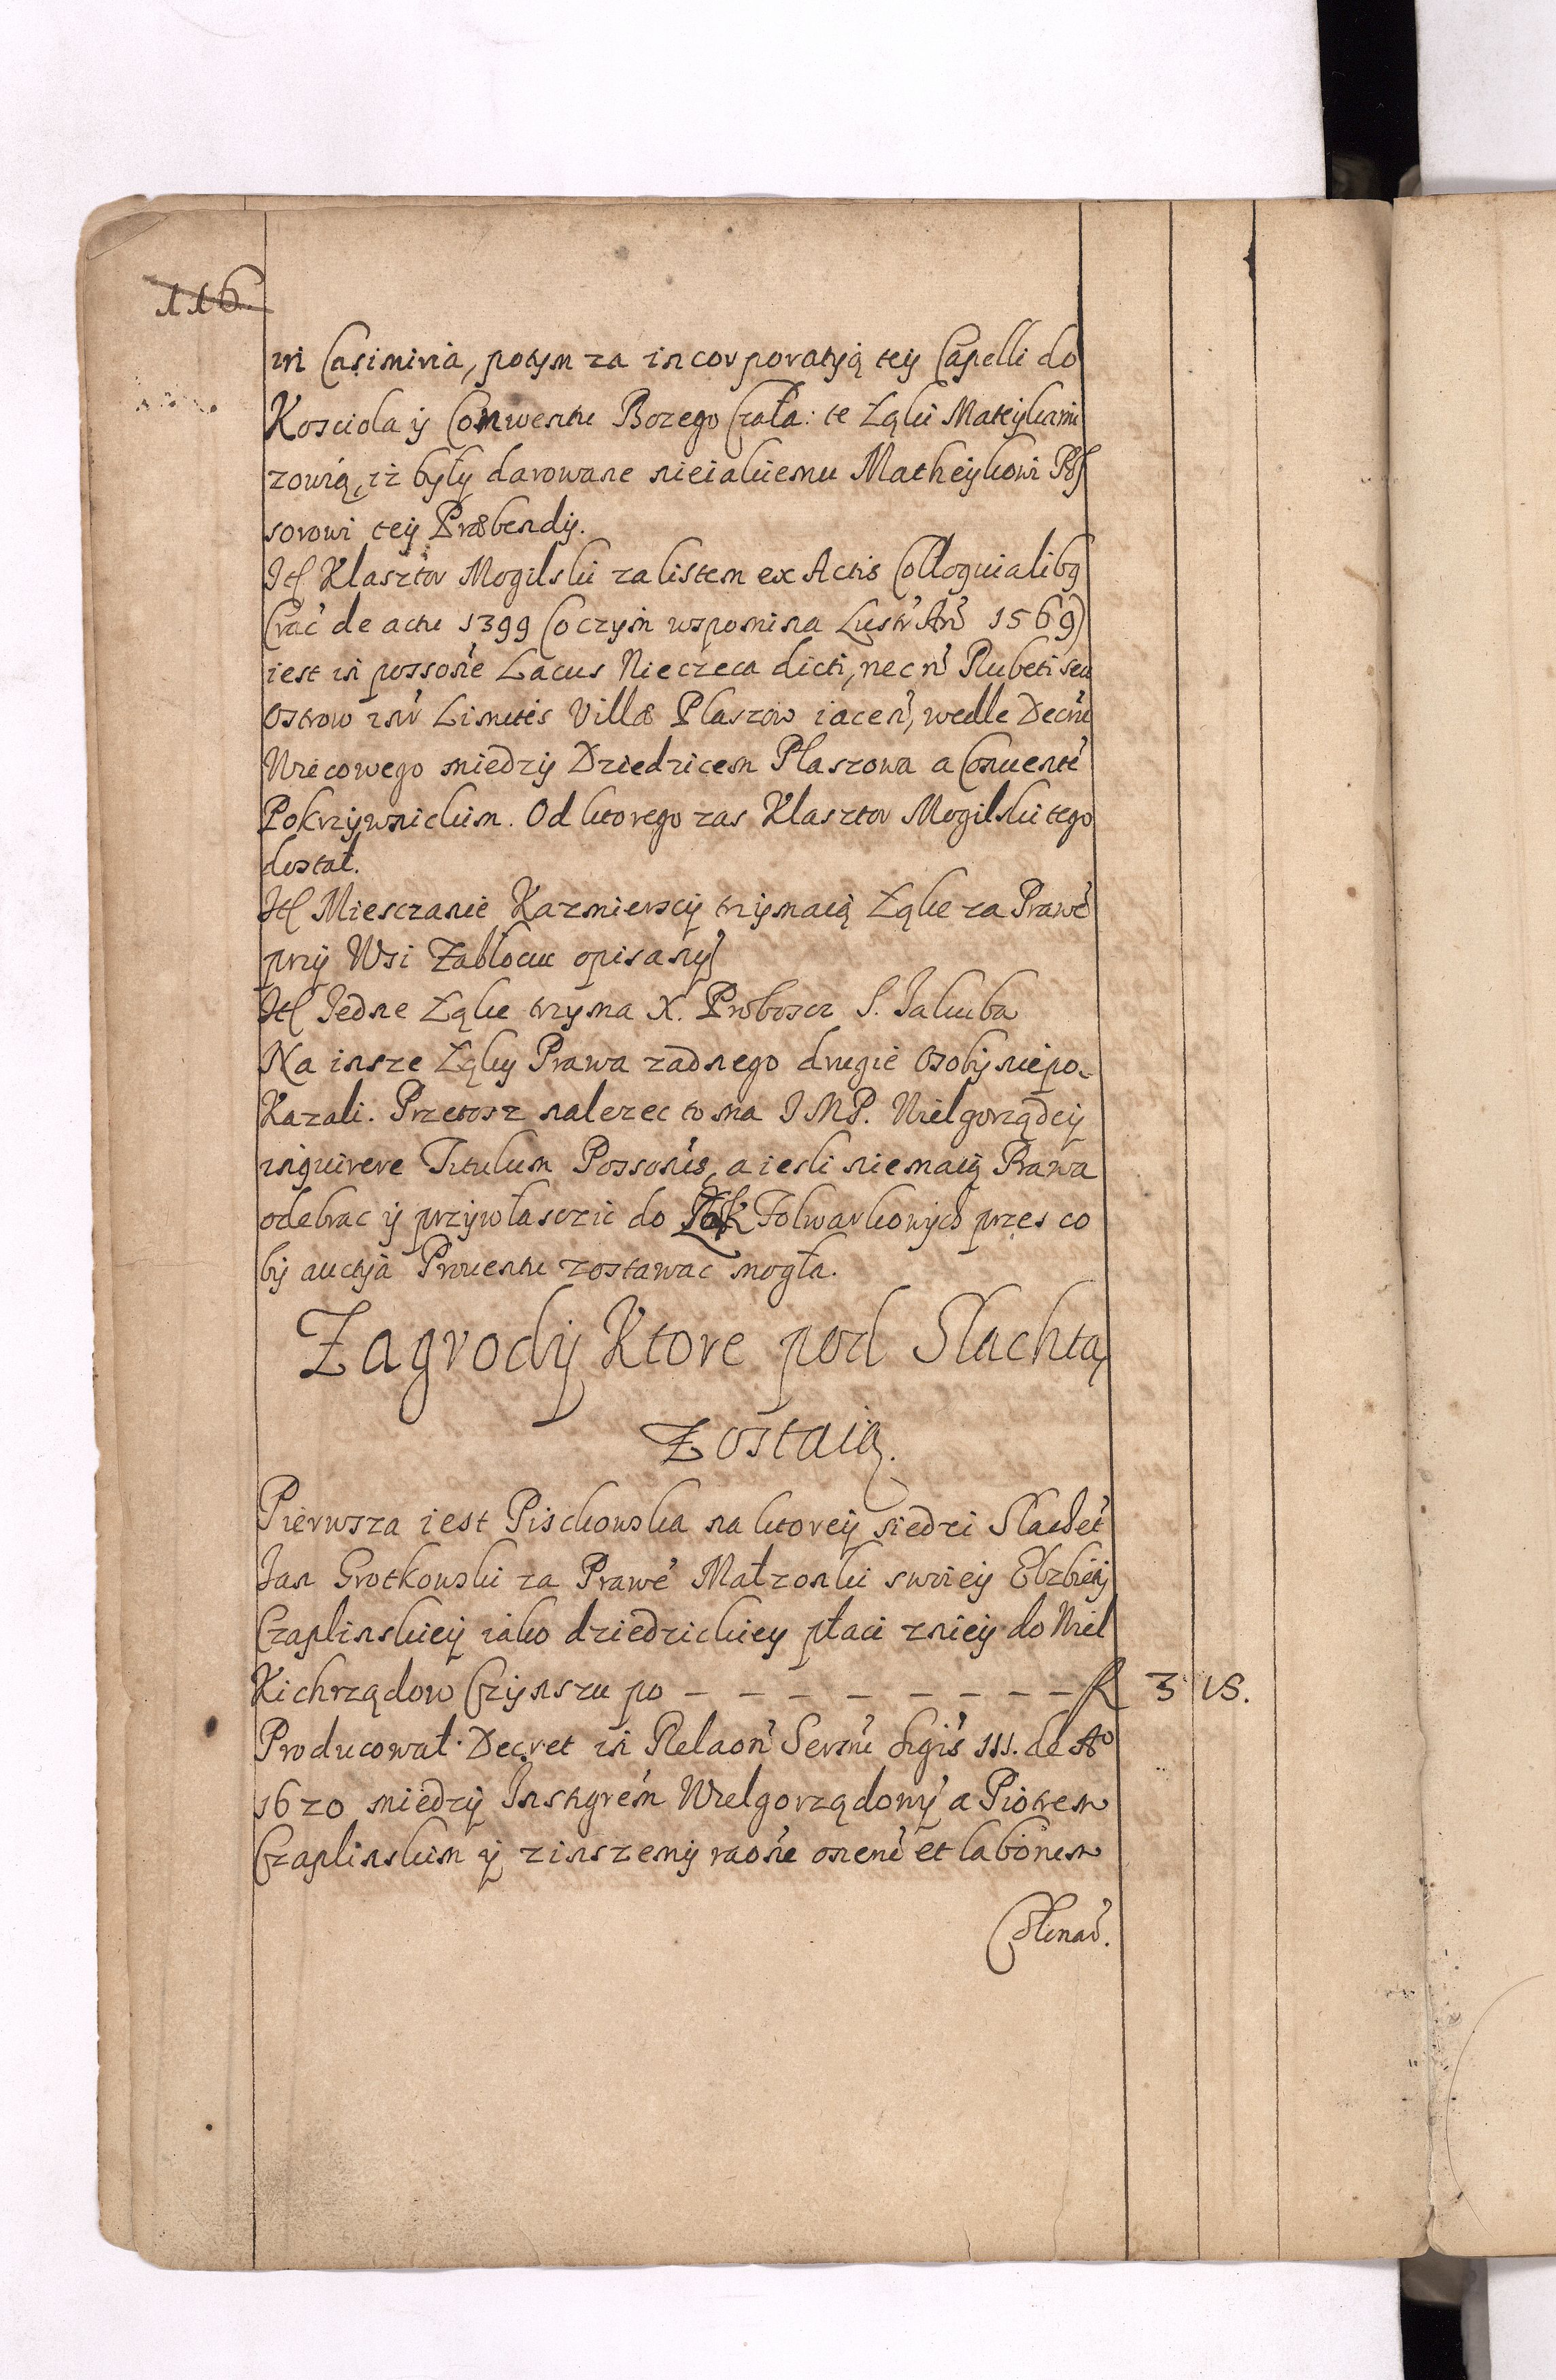 116.
in Casimiria, potym za incorporatyą tey Capelli do
Kosciola y Conwentu Bozego Ciała: te Łąki Mateykami
zowią, iż były darowane nieiakiemu Matheykowi Pos
sorowi tey Præbendy.
Itl Klasztor Mogilski za listem ex Actis Colloquialibq
Crać de actu 1399 (o czym wspomina Lustr An 1569)
iest in possone Lacus Nieczeca dicti, nec n Rubeti seu
Ostrow intr Limites Villæ Plaszow iacen, wedle Decru
Wiecowego miedzy Dziedzicem Płaszowa a Conuente
Pokrzywnickim. Od ktorego zas Klasztor Mogilski tego
dostał.
Itl Miesczanie Kazmierscy trzymaią Łąke za Prawe
przy Wsi Zabłociu opisany
Itl Jedne Łąke trzyma X. Proboscz S. Jakuba
Na insze Łąky Prawa zadnego drugie Osoby niepo-
Kazali. Przetosz nalezec to ma IMP. Wielgorządcy
inquirere Titulum Possonis, a iesli niemaią Prawa
odebrac y przywłasczic do Łąk Folwarkowych przes co
by auctya Prouentu zostawac mogła.
Zagrody Ktore pod Slachtą
Zostaią.
Pierwsza iest Pisckowska na ktorey siedzi Slachet
Jan Grotkowski za Prawe Małzonki swoiey Elzbiety
Czaplinskiey iako dziedzickiey płaci zniey do Wiel
Kichrządow Czynszu po - - - - - - - - - f 3 15.
Producowal Decret in Relaon Sermi Sigis III. de Ao
1620 miedzy Instigrem Wielgorządowy a Piotrem
Czaplinskim y zinszemy raone onenu et labonem